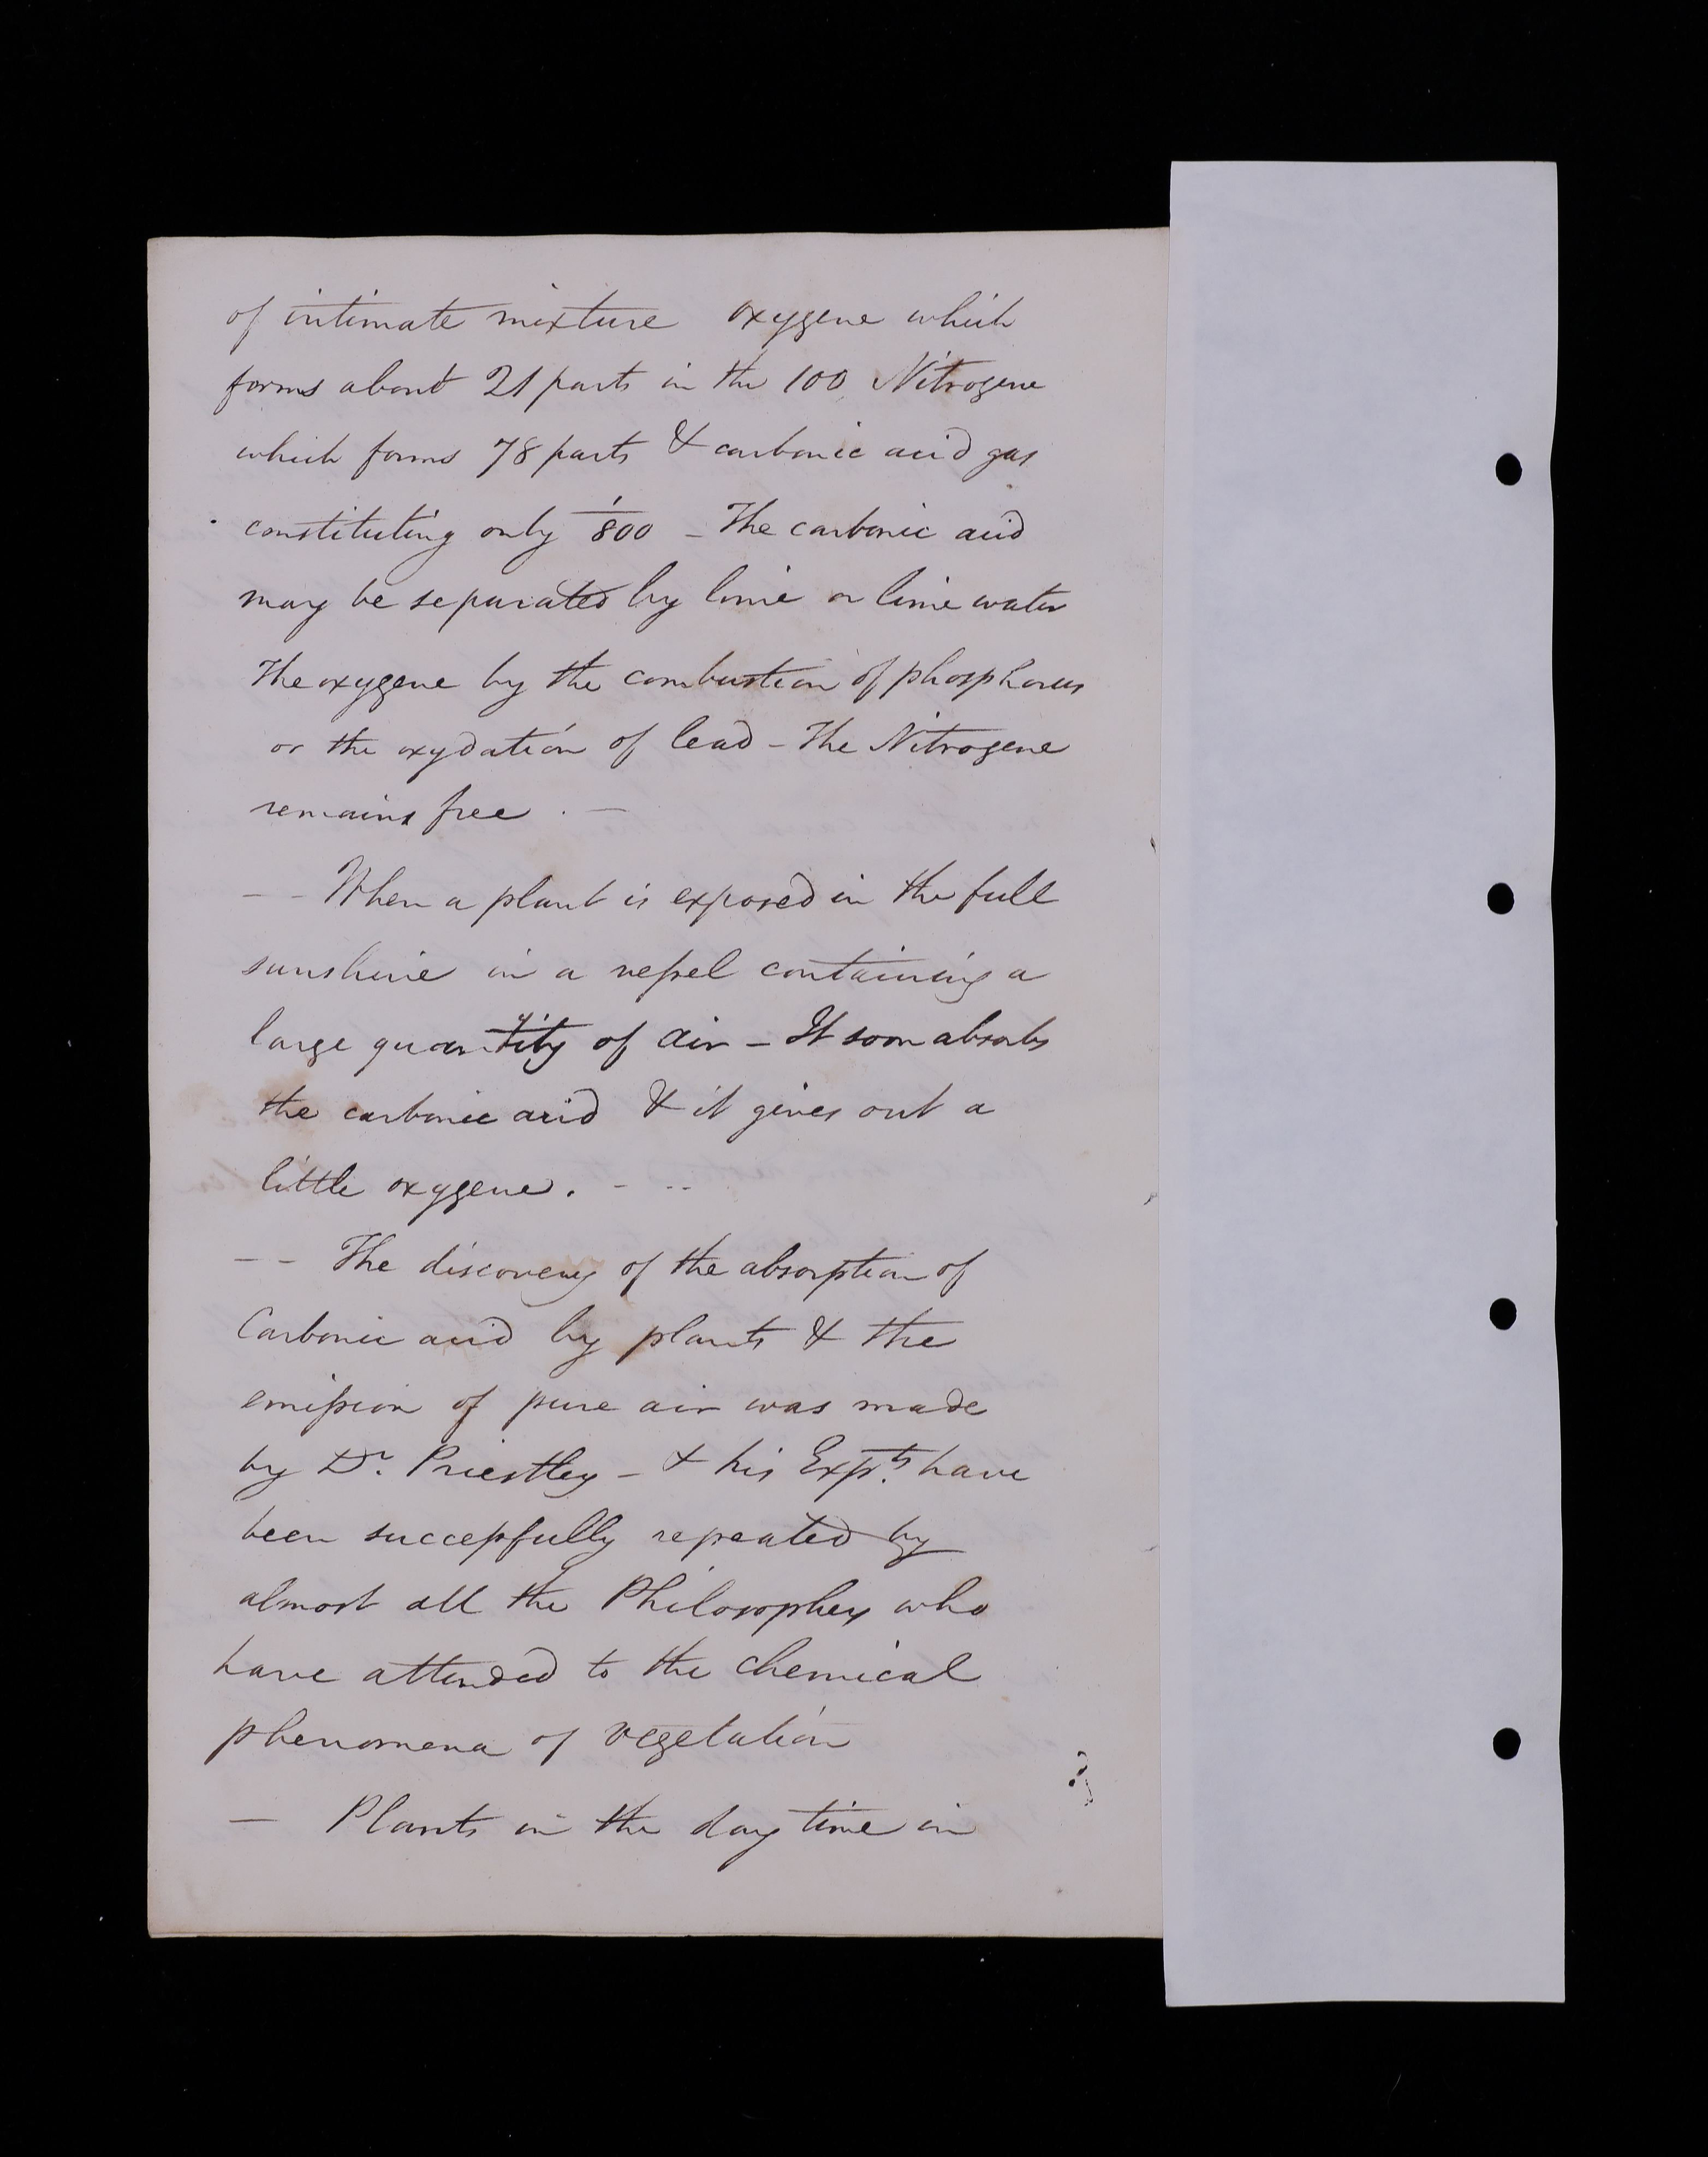 of intimate mixture oxygene which
forms about 21 parts in the 100, Nitrogene
which forms 78 parts & carbonic acid gas
constituting only 1/800 - The carbonic acid
may be separated by lime or lime water
The oxygene by the combustion of phosphorus
or the oxydation of lead - The Nitrogene
remains free . —
— - When a plant is exposed in the full
sunshine in a vessel containing a
large quantity of air - It soon absorbs
the carbonic acid & it gives out a
little oxygene. - --
— - The discovery of the absorption of
Carbonic acid by plants & the
emission of pure air was made
by Dr. Priestley - & his Expts. have
been successfully repeated by
almost all the Philosophers who
have attended to the chemical
phenomena of vegetation
— Plants in the day time in